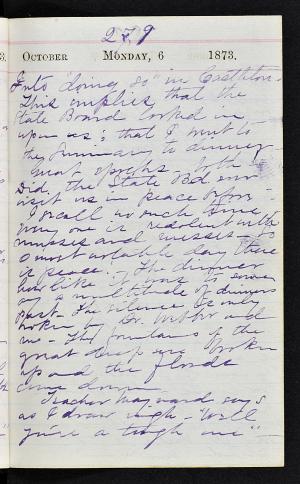 279
October Monday, 6 1873.
Into "doing so" in Castleton.
This implies that the
State Board looked in
upon us; that I went to
the Seminary to dinner
most
Did, the State Bd. ever
visit us in peace before.
I recall no such time
one is redolent with
and
most notable day there
is peace. The dinner
how like it was to
of a multitude of dinners
past. The silence is only
broken by Dr. and
me. The fountains of the
great deep are broken
up and the floods
came down.
Teacher Hayward says
as I draw nigh - "Well
you're a tough one"